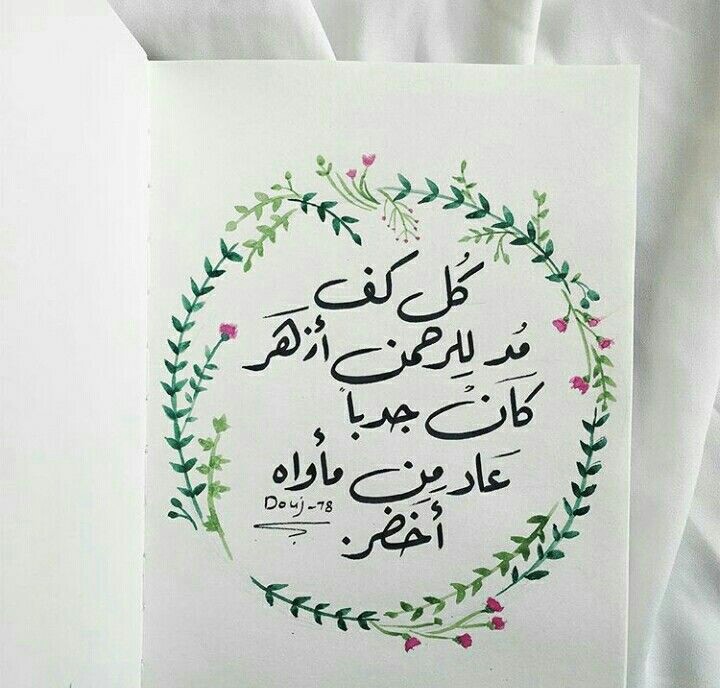 كُل كف
مُد لِلرحمن أزهَر
كَانْ جدباً
عَاد مِن مأواه
Douj-78
أخضَر.